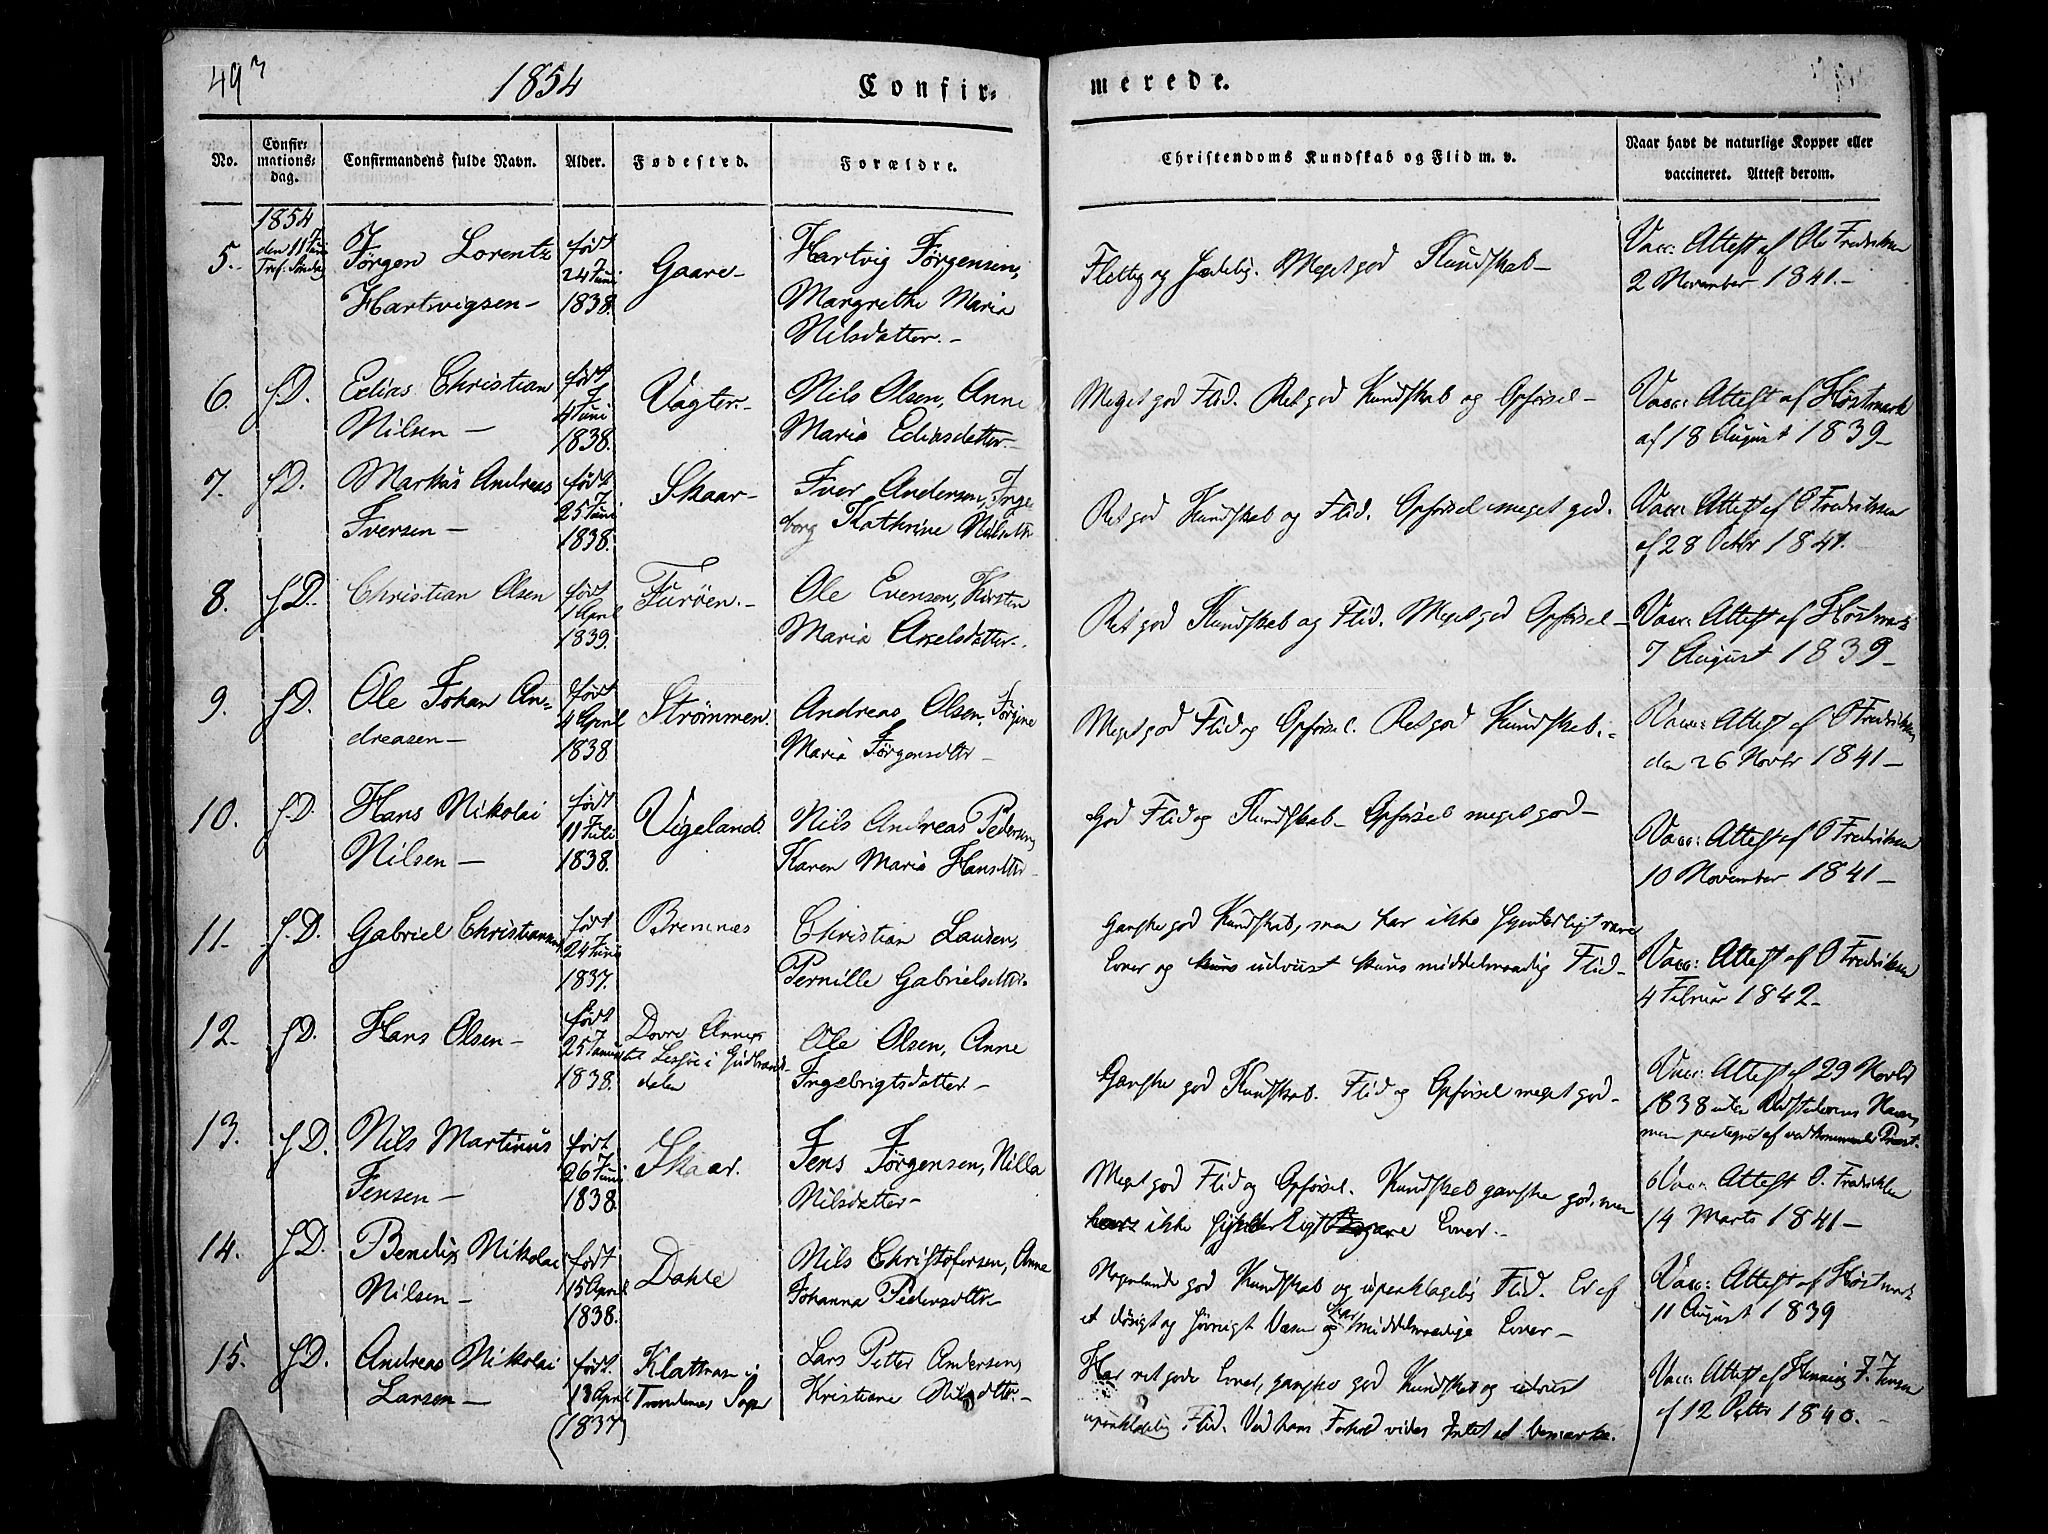 49
1854
Confir-
merede.
No.
Confir-
mations-
dag.
Confirmandens fulde Navn.
Alder.
Fødested.
Forældre.
Christendoms Kundskab og Flid m. v.
Naar havt de naturlige Kopper eller
vaccineret. Attest derom.
5.
1854
den 11 Juni
Tref: Søndag
Jørgen Lorentz
Hartvigsen
født
24 Juni
1838.
Gaare
Hartvig Jørgensen,
Margrethe Maria
Nilsdatter.
Flittig og Sædelig. Meget god Kundskab
Vacc: Attest af Ole Fredriksen
2 November 1841.
6.
f.D.
Edias Christian
Nilsen
født
4 Juni
1838.
Vagter.
Nils Olsen, Anne
Maria Ediasdatter.
Meget god Flid. Ret god Kundskab og Opførsel
Vacc: Attest af Høstmark
af 18 August 1839
7.
f.D.
Markus Andreas
Iversen
født
25 Juni
1838.
Skaar
Iver Andersen, Inge
borg Kathrine Nilsdttr
Ret god Kundskab og Flid. Opførsel meget god.
Vacc: Attest af O Fredriksen
af 28 Octbr 1841.
8.
f.D.
Christian Olsen
født
1 April
1839.
Furøen.
Ole Evensen, Kirsten
Maria Axelsdatter.
Ret god Kundskab og Flid. Meget god Opførsel
Vacc: Attest af Høstmark
7 August 1839
9.
f.D.
Ole Johan An-
dreasen
født
4 April
1838
Strømmen.
Andreas Olsen, Jørgine
Maria Jørgensdttr
Meget god Flid og Opførsel. Ret god Kundskab.
Vacc: Attest af O Fredriksen
den 26 Novbr 1841
10.
f.D.
Hans Nikolai
Nilsen
født
11 Juli
1838.
Vigeland.
Nils Andreas Pedersen,
Karen Maria Hansdttr
God Flid og Kundskab. Opførsel meget god
Vacc: Attest af O Fredriksen
10 November 1841
11.
f.D.
Gabriel Christiansen
født
24 Juni
1837.
Bremnes
Christian Larsen,
Pernille Gabrielsdttr.
Ganske god Kundskab, men har ikke synderligt rare
Evner og udviist kuns middelmaadig Flid
Vacc: Attest af O Fredriksen
4 Februar 1842
12.
f.D.
Hans Olsen
født
25 Januar
1838.
Dovre Annex
til Lessøe i Gudbrands-
dalen
Ole Olsen, Anne
Ingebrigtsdatter
Ganske god Kundskab. Flid og Opførsel meget god
Vacc: Attest af 29 Novbr
1838 uden Udstederens Navn,
men paategnet af vedkommende Præst.
13.
f.D.
Nils Martinus
Jensen
født
26 Juni
1838.
Skaar.
Jens Jørgensen, Nilla
Nilsdatter
Meget god Flid og Opførsel. Kundskab ganske god, men
ikke synderligt Evner.
Vacc: Attest O. Fredriksen
14 Marts 1841
14.
f.D.
Bendix Nikolai
Nilsen
født
15 April
1838.
Dahle
Nils Christofersen, Anne
Johanna Pedersdttr
Nogenlunde god Kundskab og upaaklagelig Flid. Er af
et døsigt og søvnigt Væsen og har middelmaadige Evner
Vacc: Attest af Høstmark
11 August 1839
15.
f.D.
Andreas Nikolai
Larsen
født
13 April
(1837)
Klattran i
Trondenes Sogn
Lars Petter Andersen,
Kristiane Nilsdttr.
Har ret gode Evner, ganske god Kundskab og udviist
upaaklagelig Flid. Ved hans Forhold vides Intet at bemærke.
Vacc: Attest af Henning J. Jensen
af 12 Octbr 1840.